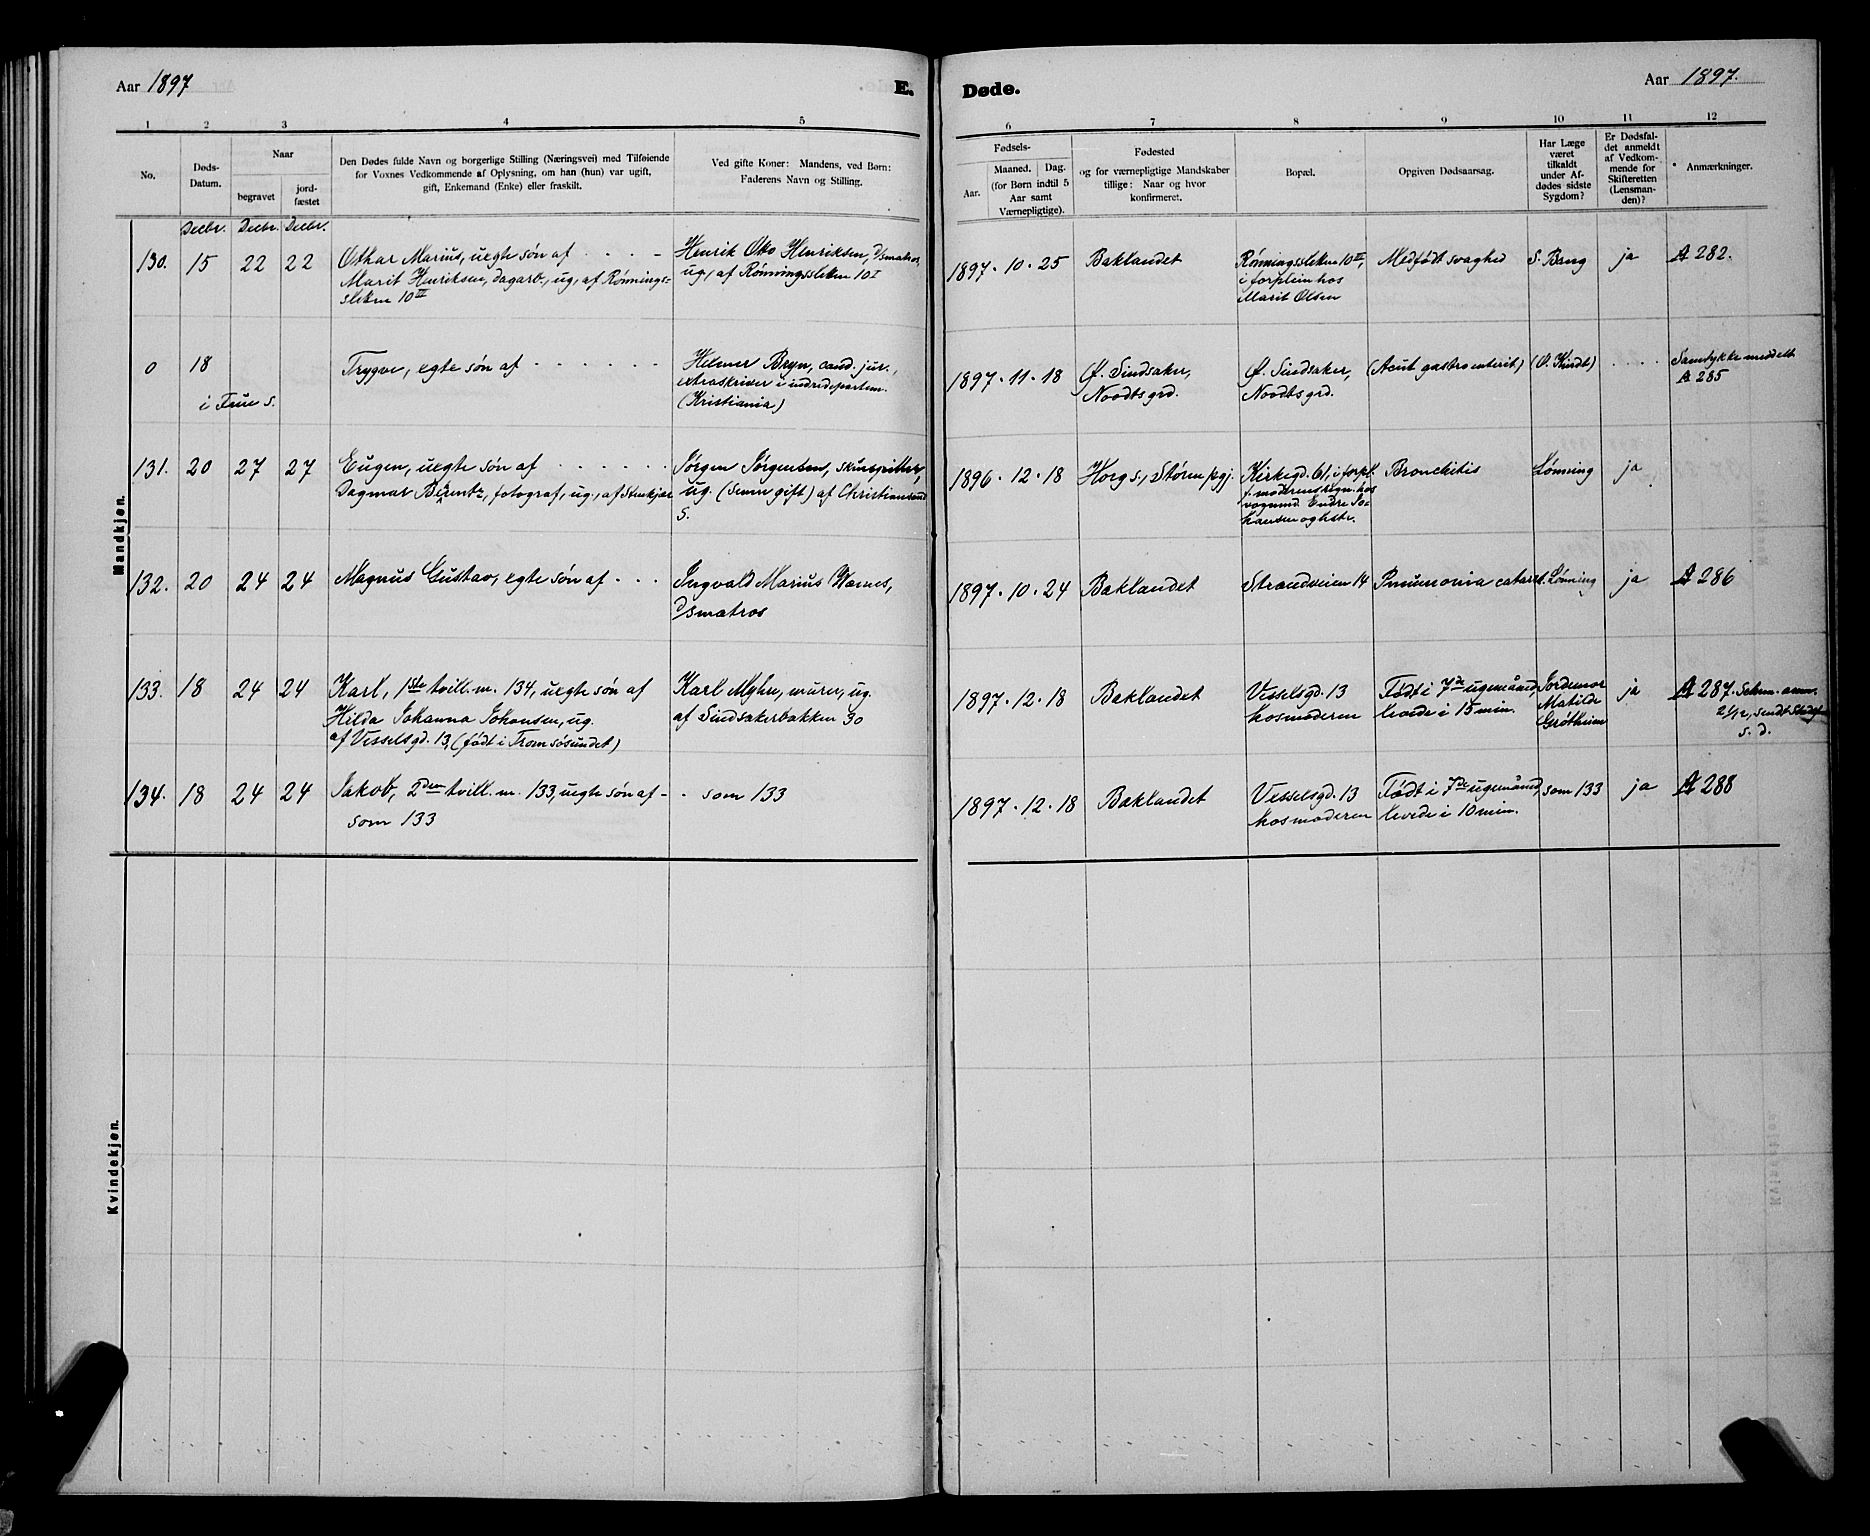 Aar 1897
E.
Døde.
Aar 1897.
1 2 3 4 5
6 7 8 9 10 11 12
No.
Døds-
Datum.
Naar
begravet
jord-
fæstet
Den Dødes fulde Navn og borgerlige Stilling (Næringsvei) med Tilføiende
for Voxnes Vedkommende af Oplysning, om han (hun) var ugift,
gift, Enkemand (Enke) eller fraskilt.
Ved gifte Koner: Mandens, ved Børn:
Faderens Navn og Stilling.
Fødsels-
Aar.
Maaned. Dag.
(for Børn indtil 5
Aar samt
Værnepligtige).
Fødested
og for værnepligtige Mandskaber
tillige: Naar og hvor
konfirmeret.
Bopæl.
Opgiven Dødsaarsag.
Har Læge
været
tilkaldt
under Af-
dødes sidste
Sygdom?
Er Dødsfal-
det anmeldt
af Vedkom-
mende for
Skifteretten
(Lensman-
den)?
Anmærkninger.
Mandkjøn.
Decbr. Decbr. Decbr.
130. 15 22 22
Othar Marius, uegte søn af
Marit Henriksen, dagarb., ug., af Rønnings-
sletten 10 II
Henrik Otto Henriksen, d/smatros,
ug., af Rønningssletten 10 I
1897. 10. 25
Baklandet
Rønningssletten 10 II,
i forplein hos
Marit Olsen
Medfødt svaghed
S. Bang
ja
A 282.
0 18
i Frue s.
Trygve, egte søn af
Helmer Bryn, cand. jur.,
extraskriver i indredepartem.
(Kristiania)
1897. 11. 18
Ø. Sindsaker,
Noodtsgrd.
Ø. Sindsaker,
Noodtsgrd.
(Acut gastroenterit)
(O. Kindt)
Samtykke meddelt
A 285
131. 20 27 27
Eugen, uegte søn af
Dagmar Berentz, fotograf, ug., af Stenkjær
Jørgen Jørgensen,
ug. (senere gift) af Christiansund
S.
1896. 12. 18
Horg s., Støren pgj.
Kirkegd. 61, i forpl.
f. moderens regn. hos
vognmd. Endre Jo-
hansen og hstr.
Bronchitis
Lønning
ja
132. 20 24 24
Magnus Gustav, egte søn af
Ingvald Marius Hanes,
d/smatros
1897. 10. 24
Baklandet
Strandveien 14
Pneumonia catarrh.
Lønning
ja
A 286
133. 18 24 24
Karl, 1ste tvill. m. 134, uegte søn af
Hilda Johanna Johansen, ug.
af Vesselsgd. 13, (født i Tromsøsundet)
Karl Myhre, murer, ug.
af Sindsakerbakken 30
1897. 12. 18
Baklandet
Vesselsgd. 13
hos moderen
Født i 7de ugemåned,
levede i 15 min.
Jordemor
Matilde
Grøtheim
ja
A 287.
s. d.
134. 18 24 24
Jakob, 2den tvill. m. 133, uegte søn af
som 133
som 133
1897. 12. 18
Baklandet
Vesselsgd. 13
hos moderen
Født i 7de ugemåned,
levede i 10 min.
som 133
ja
A 288
Kvindekjøn.